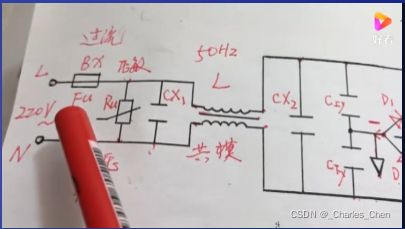 过流
BX
L
Fu
压敏
Ru
CX1
50Hz
L
共模
CX2
CIy
CIy
D1
D
220V
N
好看
CSDN @_Charles_Chen